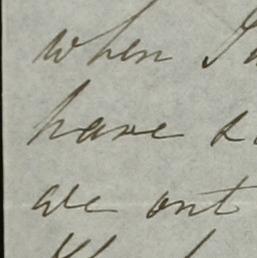 when I
have
we out